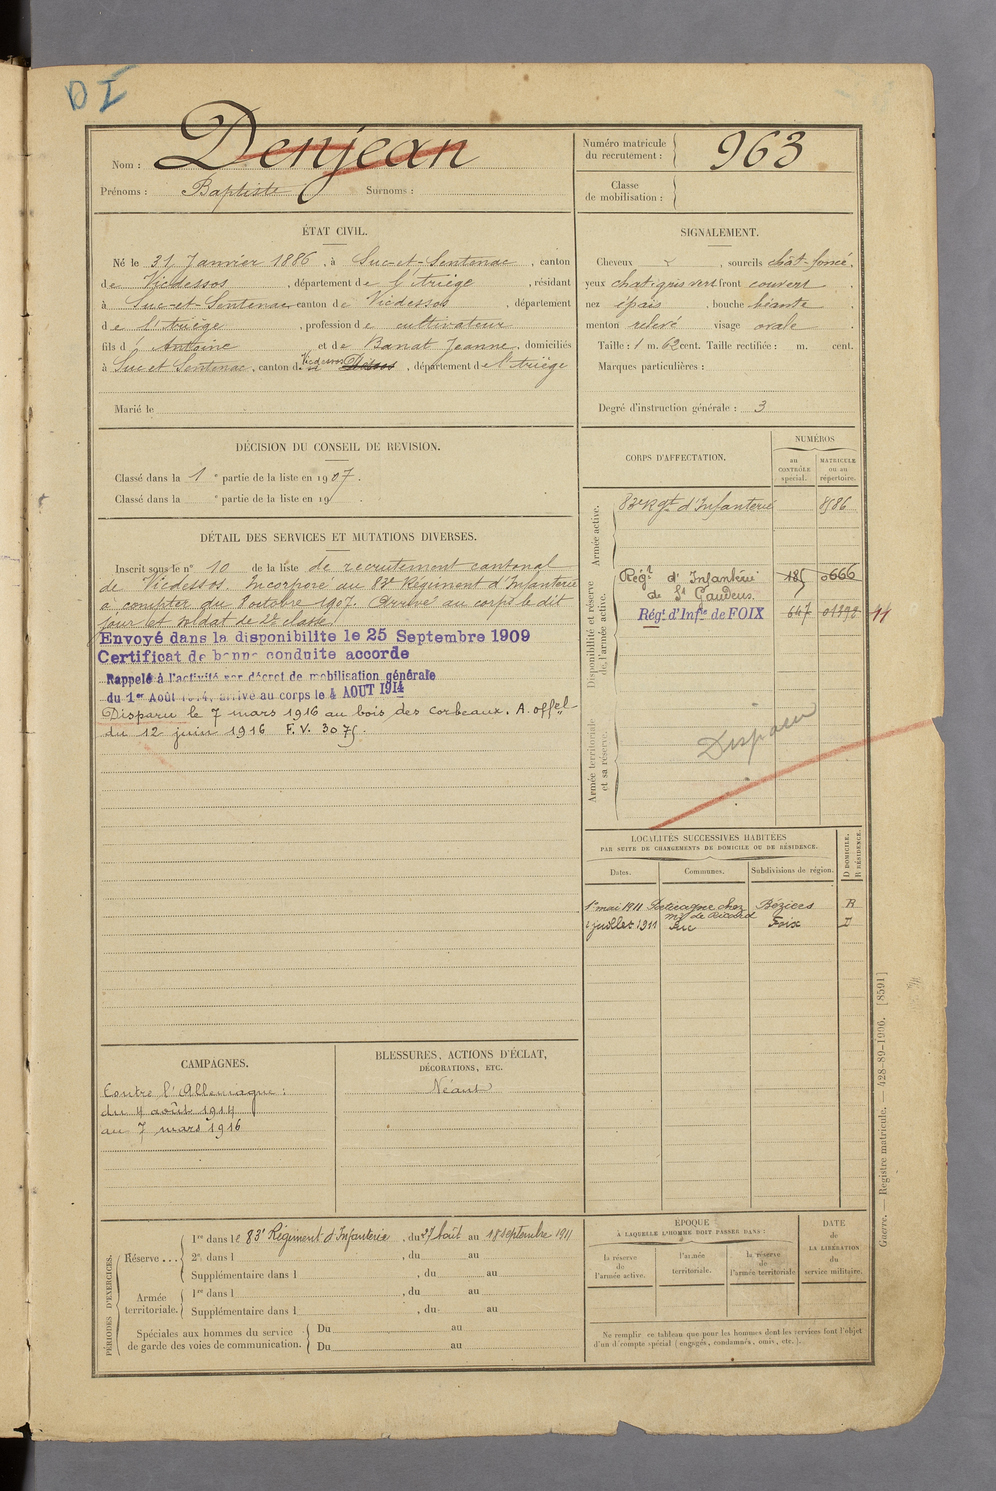 D I
Nom : Denjean
Prénoms : Baptiste Surnoms :
Numéro matricule du recrutement : 963
Classe de mobilisation :
ÉTAT CIVIL.
Né le 31 Janvier 1886, à Suc-et-Sentenac, canton
de Vicdessos, département de l'Ariège, résidant
à Suc-et-Sentenac canton de Vicdessos, département
de l'Ariège, profession de cultivateur
fils d' Antoine et de Banat Jeanne, domiciliés
à Suc et Sentenac, canton d Vicdessos, département de l'Ariège
Marié le
SIGNALEMENT.
Cheveux , sourcils chât-foncé.
yeux chat-gris vert front couvert
nez épais, bouche béante
menton relevé visage ovale.
Taille : 1 m. 62 cent. Taille rectifiée : m. cent.
Marques particulières :
Degré d'instruction générale : 3
DÉCISION DU CONSEIL DE REVISION.
Classé dans la 1e partie de la liste en 1907.
Classé dans la e partie de la liste en 19 .
DÉTAIL DES SERVICES ET MUTATIONS DIVERSES.
Inscrit sous le n° 10 de la liste de recrutement cantonal
de Vicdessos. Incorporé au 83e Régiment d'Infanterie
à compter du 8 octobre 1907. Arrivé au corps le dit
jour et soldat de 2e classe.
Envoyé dans la disponibilite le 25 Septembre 1909
Certificat de bonne conduite accorde
Rappelé à l'activité par décret de mobilisation générale
du 1er Août 1914, arrivé au corps le 4 AOUT 1914
Disparu le 7 mars 1916 au bois des Corbeaux. A. offel
du 12 juin 1916 F.V. 3075.
CORPS D'AFFECTATION.
NUMÉROS
au CONTRÔLE spécial.
MATRICULE ou au répertoire.
Armée active.
83e Rgt d'Infanterie 8586
Disponibilité et réserve de l'armée active.
Régt d'Infanterie 185 0666
de St Gaudens.
Régt d'Infie de FOIX 647 44
Armée territoriale et sa réserve.
Disparu
LOCALITÉS SUCCESSIVES HABITÉES
PAR SUITE DE CHANGEMENTS DE DOMICILE OU DE RÉSIDENCE.
Dates. Communes. Subdivisions de région. D DOMICILE. R RÉSIDENCE.
1er mai 1911 chez Béziers R
Mr de Ricard
juillet 1911 Suc Foix D
CAMPAGNES.
Contre l'Allemagne :
du 4 août 1914
au 7 mars 1916
BLESSURES, ACTIONS D'ÉCLAT,
DÉCORATIONS, ETC.
Néant
PÉRIODES D'EXERCICES.
Réserve ...
1re dans le 83e Régiment d'Infanterie, du 27 Août au 18 septembre 1911
2e dans l , du au
Supplémentaire dans l , du au
Armée territoriale.
1re dans l , du au
Supplémentaire dans l , du au
Spéciales aux hommes du service
de garde des voies de communication.
Du au
Du au
ÉPOQUE
À LAQUELLE L'HOMME DOIT PASSER DANS :
la réserve de l'armée active.
l'armée territoriale.
la réserve de l'armée territoriale
DATE DE LA LIBÉRATION du service militaire.
Ne remplir ce tableau que pour les hommes dont les services font l'objet
d'un décompte spécial (engagés, condamnés, omis, etc.).
Guerre. — Registre matricule. — 428-89-1906. [8591]